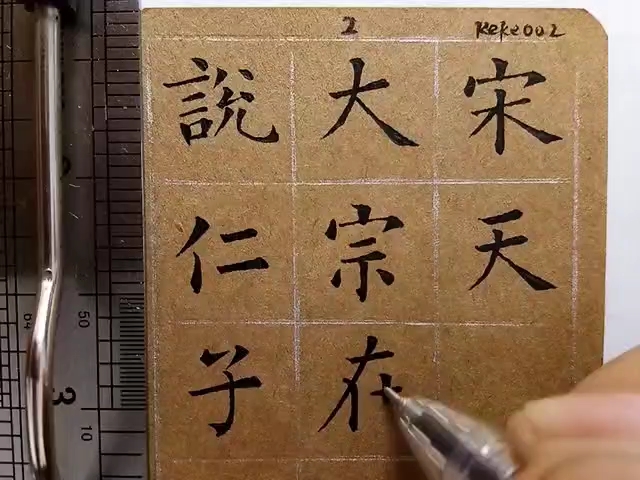 2 keke002
説大宋
仁宗天
子在
50
3
10